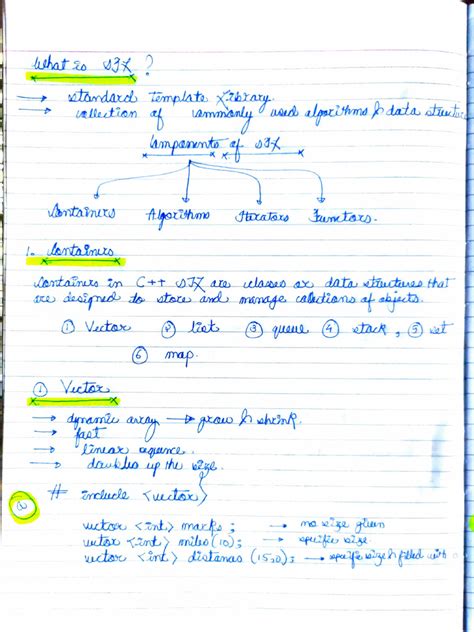 What is STL ?
→ standard Template Library.
→ collection of commonly used algorithms & data structu
Components of STL
Containers Algorithms Iterators Functors.
1. Containers
Containers in C++ STL are classes or data structures that
are designed to store and manage collections of objects.
① Vector ② list ③ queue ④ stack, ⑤ set
⑥ map.
① Vector
→ dynamic array → grow & shrink.
→ fast
→ linear sequence.
→ doubles up the size.
# include <vector>
vector <int> marks; → no size given
vector <int> miles(10); → specific size.
vector <int> distances (15,0); → specific size & filled with